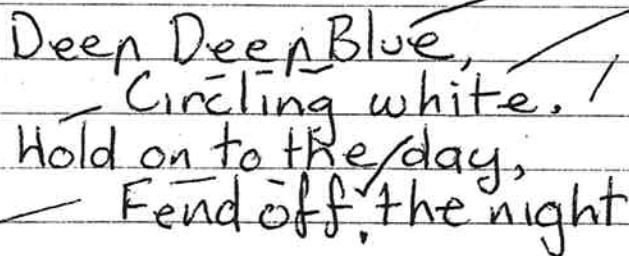 Deep Deep Blue,
Circling white.
Hold on to the day,
Fend off, the night